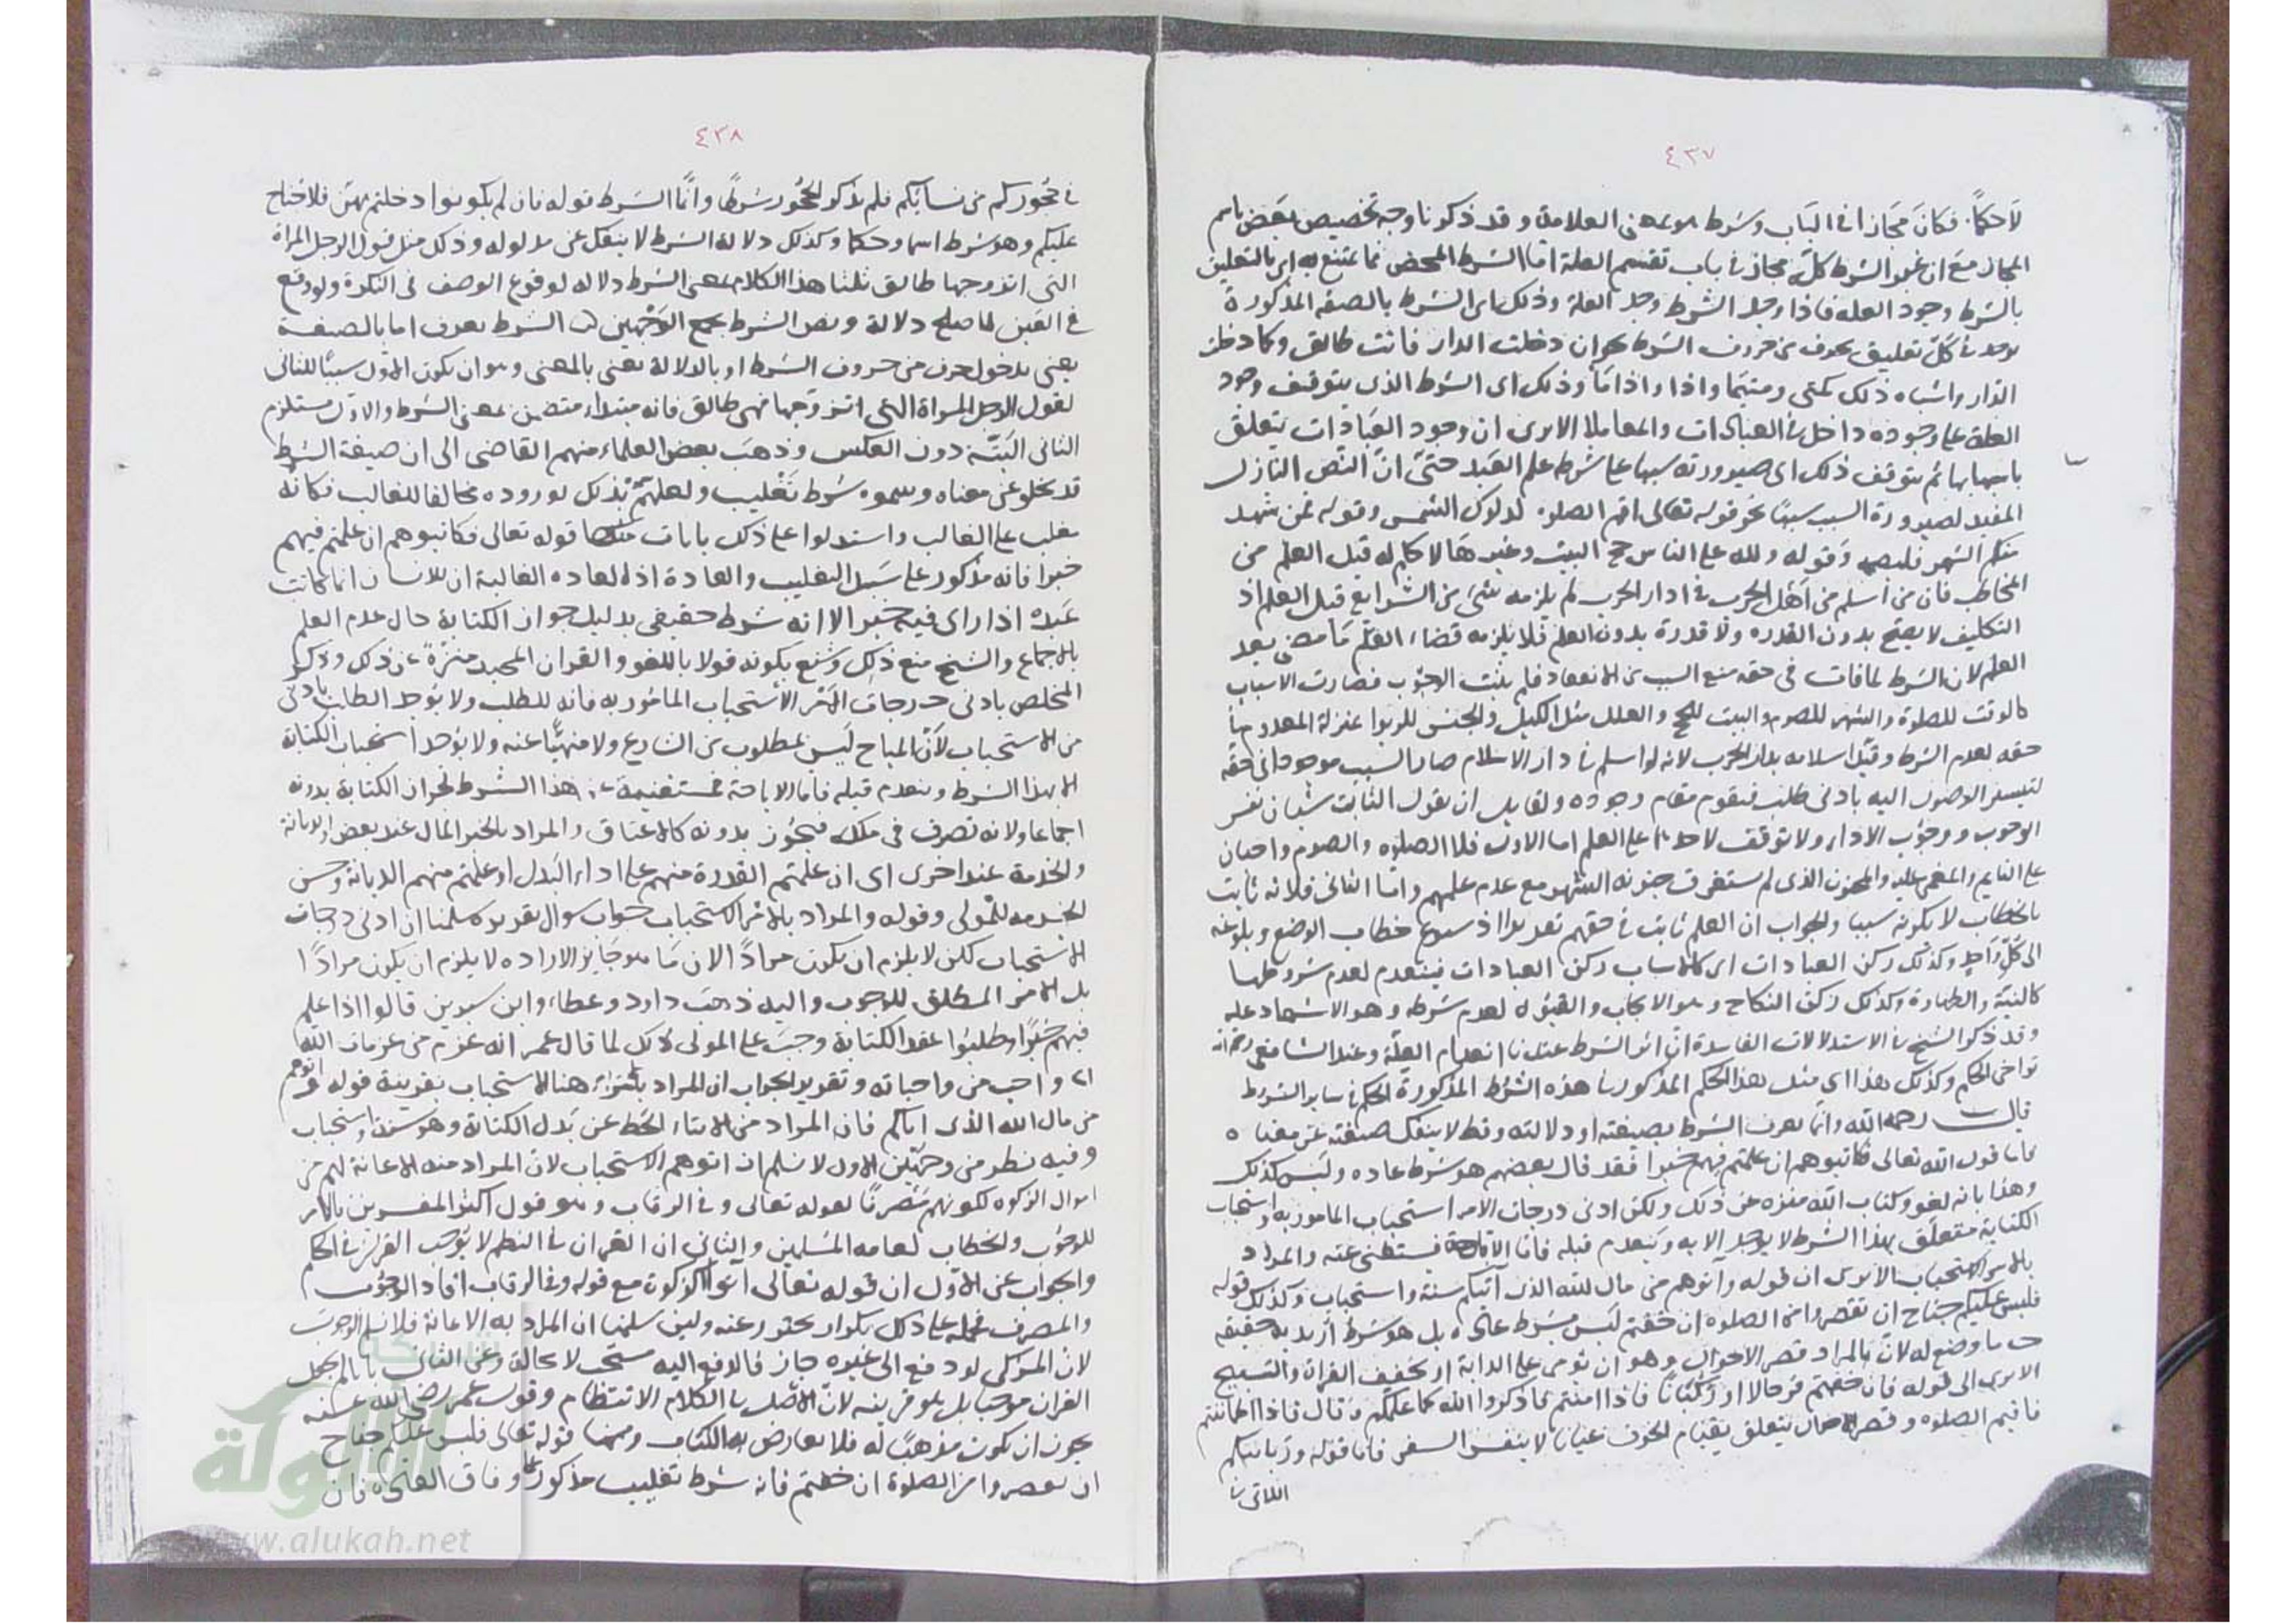 ٤٣٧
لا حكمًا فكان مجازا في الباب وشرط هو بمعنى العلامة وقد ذكرنا وجه تخصيص بعض باسم
المجاز مع ان غير الشرط كله مجاز في باب تقسيم العلة اما الشرط المحض فما يمتنع به اي بالتعليق
بالشرط وجود العله فاذا وجد الشرط وجد العلة وذلك اي الشرط بالصفه المذكورة
يوجد في كل تعليق بحرف من حروف الشرط نحو ان دخلت الدار فانت طالق وكلما دخلت
الدار واشباه ذلك كمتى ومتيما واذا واذا ما وذلك اى الشرط الذى يتوقف وجود
العلة على وجوده داخل في العبادات والمعاملا الا يرى ان وجود العبادات يتعلق
باسبابها ثم يتوقف ذلك اى صيرورته سببا على شرط علم العبد حتى انّ النص النازل
المفيد لصيرورة السبب سببًا نحو قوله تعالى اقم الصلوه لدلوك الشمس وقوله فمن شهد
منكم الشهر فليصمه وقوله ولله على الناس حج البيت وغيرها لا حكم له قبل العلم من
المخاطب فان من اسلم من اهل الحرب في دار الحرب لم يلزمه شئ من الشرايع قبل العلم اذ
التكليف لا يصح بدون القدره ولا قدرة بدون العلم فلا يلزمه قضاء ما مضى بعد
العلم لان الشرط لما فات في حقه منع السبب من الانعقاد فلم يثبت الوجوب فصارت الاسباب
كالوقت للصلوة والشهر للصوم والبيت للحج والعلل مثل الكيل والجنس للربوا بمنزلة المعدوم في
حقه لعدم الشرط وقيد اسلامه بدار الحرب لانه لو اسلم في دار الاسلام صار السبب موجودا في حقه
لتيسر الوصول اليه بادنى طلب فيقوم مقام وجوده ولقايل ان يقول الثابت شيئان نفس
الوجوب ووجوب الاداء ولا توقف لاحدهما على العلم اما الاول فلان الصلوه والصوم واجبان
على النايم والمغمى عليه والمجنون الذى لم يستغرق جنونه الشهر مع عدم علمهم واما الثانى فلانه ثابت
بالخطاب لا بكونه سببا والجواب ان العلم ثابت في حقهم تقديرا اذ شيوع خطاب الوضع وبلوغه
الى كل واحد وكذلك ركن العبادات اى كالاسباب ركن العبادات ينعدم لعدم شروطها
كالنية والطهارة وكذلك ركن النكاح وهو الايجاب والقبول لعدم شرطه وهو الاشهاد عليه
وقد ذكر الشيخ في الاستدلالات الفاسدة ان اثر الشرط عندنا انعدام العلة وعند الشافعى رحمه الله
تراخى الحكم وكذلك هذا اى مثل هذا الحكم المذكور في هذه الشرط المذكورة الحكم في ساير الشروط
قال رحمه الله وانما يعرف الشرط بصيغته او دلالته وقط لا ينفك صيغته عن معناه
فاما قول الله تعالى فكاتبوهم ان علمتم فيهم خيرا فقد قال بعضهم هو شرط عاده وليس كذلك
وهذا بانه لغو وكتاب الله منزه عن ذلك ولكن ادنى درجات الامر استحباب المامور به واستحباب
الكتابة متعلق بهذا الشرط لا يوجد الا به وينعدم قبله فاما الاباحة فيستغنى عنه والمراد
بالامر الاستحباب الا يرى ان قوله وآتوهم من مال الله الذى آتيكم سنة واستحباب وكذلك قوله
فليس عليكم جناح ان تقصروا من الصلوه ان خفتم ليس بشرط عاده بل هو شرط اريد به حقيقة
ما وضع له لان المراد قصر الاحوال وهو ان يومى على الدابة او تخفيف القراة والتسبيح
الا يرى الى قوله فان خفتم فرجالا او ركبانًا فاذا امنتم فاذكروا الله كما علمكم وقال فاذا اطمانتم
فاقيموا الصلوه وقصر الاحوال يتعلق بقيام الخوف عيانا لا بنفس السفر فاما قوله وربائبكم
اللاتي في
٤٣٨
في حجوركم من نسائكم فلم يذكر الحجور شرطًا وانّما الشرط قوله فان لم يكونوا دخلتم بهن فلا جناح
عليكم وهو شرط اسما وحكما وكذلك دلالة الشرط لا ينفك عن مدلوله وذلك مثل قول الرجل المراة
التى اتزوجها طالق ثلثا هذا الكلام بمعنى الشرط دلاله لوقوع الوصف فى النكرة ولو وقع
في العين لما صلح دلالة ونص الشرط يجمع الوجهين ش الشرط يعرف اما بالصيغة
يعنى بدخول حرف من حروف الشرط او بالدلالة يعنى بالمعنى وهو ان يكون الاول سببًا للثانى
كقول الرجل المراة التى اتزوجها فهى طالق فانه مبتداء متضمن بمعنى الشرط والاول مستلزم
الثانى البتة دون العكس وذهب بعض العلماء منهم القاضى الى ان صيغة الشرط
قد تخلو عن معناه ويسموه شرط تغليب ولعلهم بذلك لوروده مخالفا للغالب فكانه
يغلب على الغالب واستدلوا على ذلك بايات منها قوله تعالى فكاتبوهم ان علمتم فيهم
خيرا فانه مذكور على سبيل التغليب والعادة اذ العاده الغالبة ان الانسان انما يكاتب
عبده اذا راى فيه خيرا الا انه شرط حقيقى بدليل جواز الكتابة حال عدم العلم
بالاجماع والشيخ منع ذلك وشنع بكونه قولا باللغو والقران المجيد منزّه عن ذلك وذكر
المخلص بادنى درجات الامر الاستحباب المامور به فانه للطلب ولا يوجد الطلب بادنى
من الاستحباب لانّ المباح ليس بمطلوب من الشارع ولا منهيًّا عنه ولا يوجد استحباب الكتابة
الا بهذا الشرط وينعدم قبله فاما الاباحة فمستغنية عن هذا الشرط لجواز الكتابة بدونه
اجماعا ولانه تصرف فى ملكه فيجوز بدونه كالاعتاق والمراد بالخير المال عند بعض والامانة
والخدمة عند اخرى اى ان علمتم القدرة منهم على اداء البدل او علمتم منهم الديانة وحسن
الخدمه للمولى وقوله والمراد بالامر الاستحباب جواب سوال تقديره سلمنا ان ادنى درجات
الاستحباب لكن لا يلزم ان يكون مرادًا الان ما هو جايز الاراده لا يلزم ان يكون مرادًا
بل الامر المطلق للوجوب واليه ذهب داود وعطاء وابن سيرين قالوا اذا علم
فيهم خيرًا وطلبوا عقد الكتابة وجب على المولى ذلك لما قال عمر انه عزم من عزمات الله
اى واجب من واجباته وتقرير الجواب ان المراد بالامر هنا الاستحباب بقرينة قوله واتوهم
من مال الله الذى اتاكم فان المراد من الايتاء الحط عن بدل الكتابة وهو سنة واستحباب
وفيه نظر من وجهين الاول لا نسلم ان اتوهم الاستحباب لان المراد منه الاعانة لهم من
اموال الزكوه لكونهم مصرفًا لقوله تعالى وفى الرقاب وهو قول اكثر المفسرين فالامر
للوجوب والخطاب لعامه المسلمين والثانى ان القران في النظم لا يوجب القران في الحكم
والجواب عن الاول ان قوله تعالى اتوا الزكوت مع قوله وفى الرقاب افاد الوجوب
والمصرف فحمله على ذلك تكرار يحترز عنه ولين سلمنا ان المراد به الاعانة فلا نسلم الوجوب
لان المزكى لو دفع الى غيره جاز فالدفع اليه مستحب لا محالة وعن الثانى بانا لم نجعل
القران موجبا بل هو قرينه لان الاصل في الكلام الانتظام وقول عمر رضي الله عنه
يجوز ان يكون مذهبًا له فلا يعارض به الكتاب ومنها قوله تعالى فليس عليكم جناح
ان تقصروا من الصلوة ان خفتم فانه شرط تغليب مذكور على وفاق العاده فان
شبكة
الألوكة
www.alukah.net